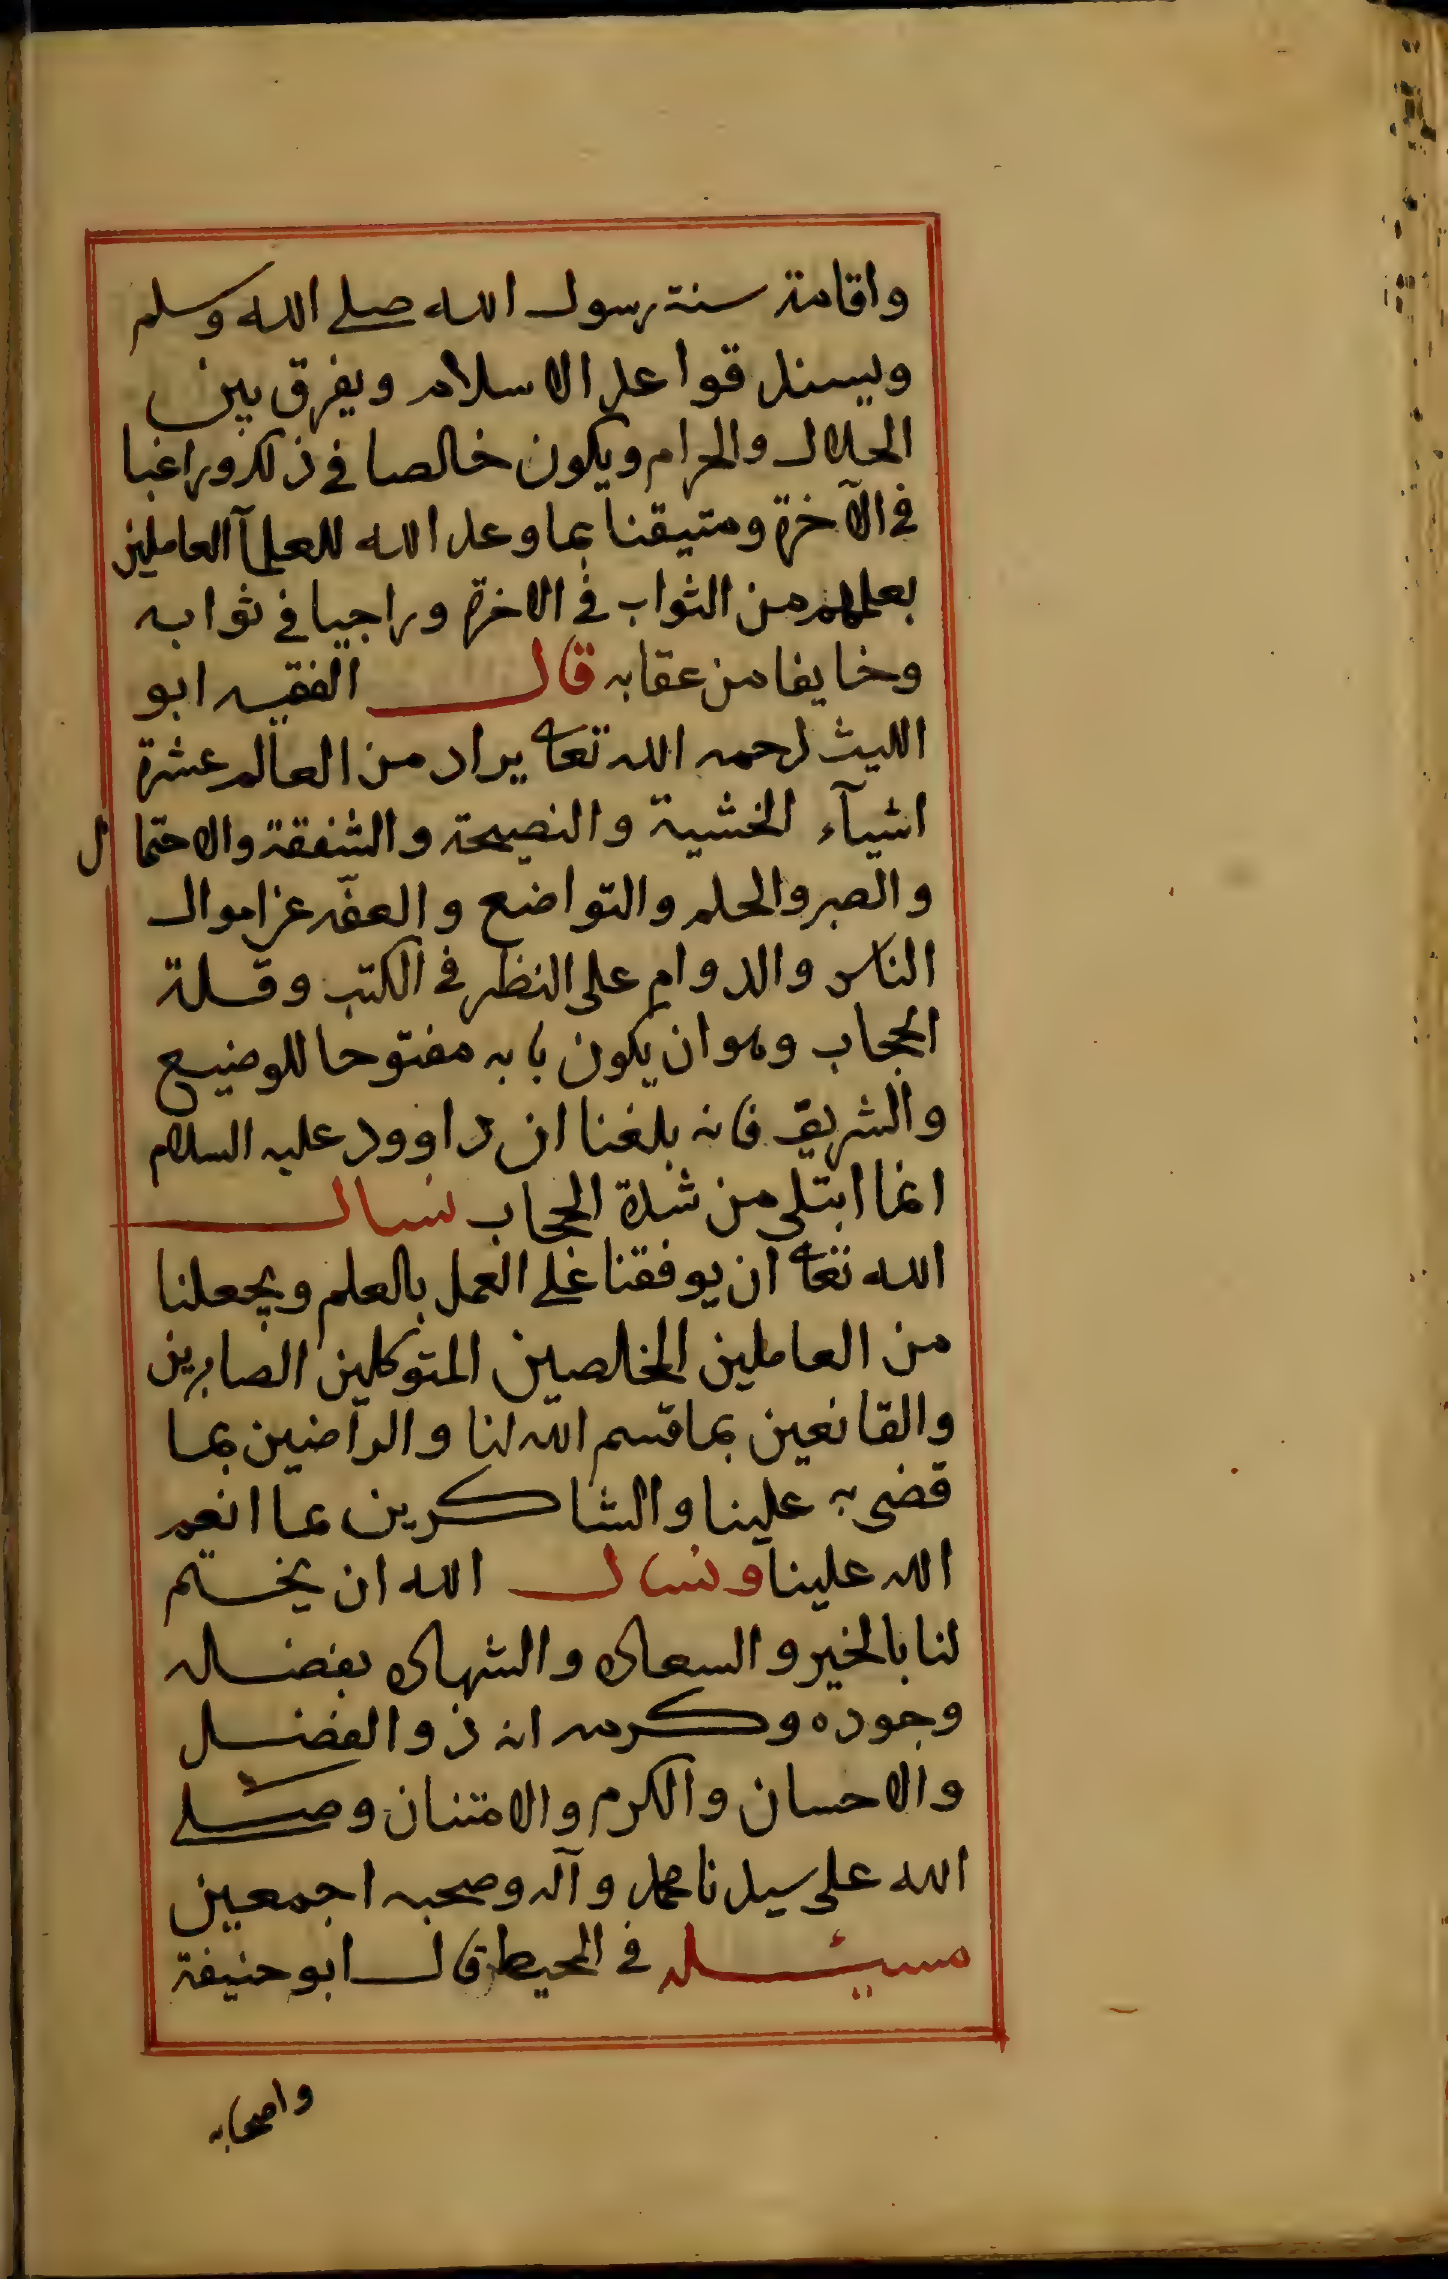 واقامة سنة رسول الله صلے الله وسلم
ويسند قواعد الاسلام ويفرق بين
الحلال والحرام ويكون خالصا في ذلك وراغبا
في الآخرة ومتيقنا بما وعد الله للعلمآ العاملين
بعلمهم من الثواب في الاخرة وراجيا في ثوابه
وخايفا من عقابه قال الفقيه ابو
الليث رحمه الله تعا يراد من العالم عشرة
اشيآء الخشية والنصيحة والشفقة والاحتمال
والصبر والحلم والتواضع والعفّه عن اموال
الناس والدوام على النظر في الكتب وقلة
الحجاب وهو ان يكون بابه مفتوحا للوضيع
والشريف فانه بلغنا ان داوود عليه السلام
انما ابتلى من شدة الحجاب نسال
الله تعا ان يوفقنا على العمل بالعلم ويجعلنا
من العاملين المخلصين المتوكلين الصابرين
والقانعين بما قسم الله لنا والراضين بما
قضى به علينا والشاكرين بما انعم
الله علينا ونسال الله ان يختم
لنا بالخير والسعاده والشهاده بفضله
وجوده وكرمه انه ذو الفضل
والاحسان والكرم والامتنان وصلے
الله على سيدنا محمد وآله وصحبه اجمعين
مسيئله في المحيط قال ابو حنيفة
واصحابه